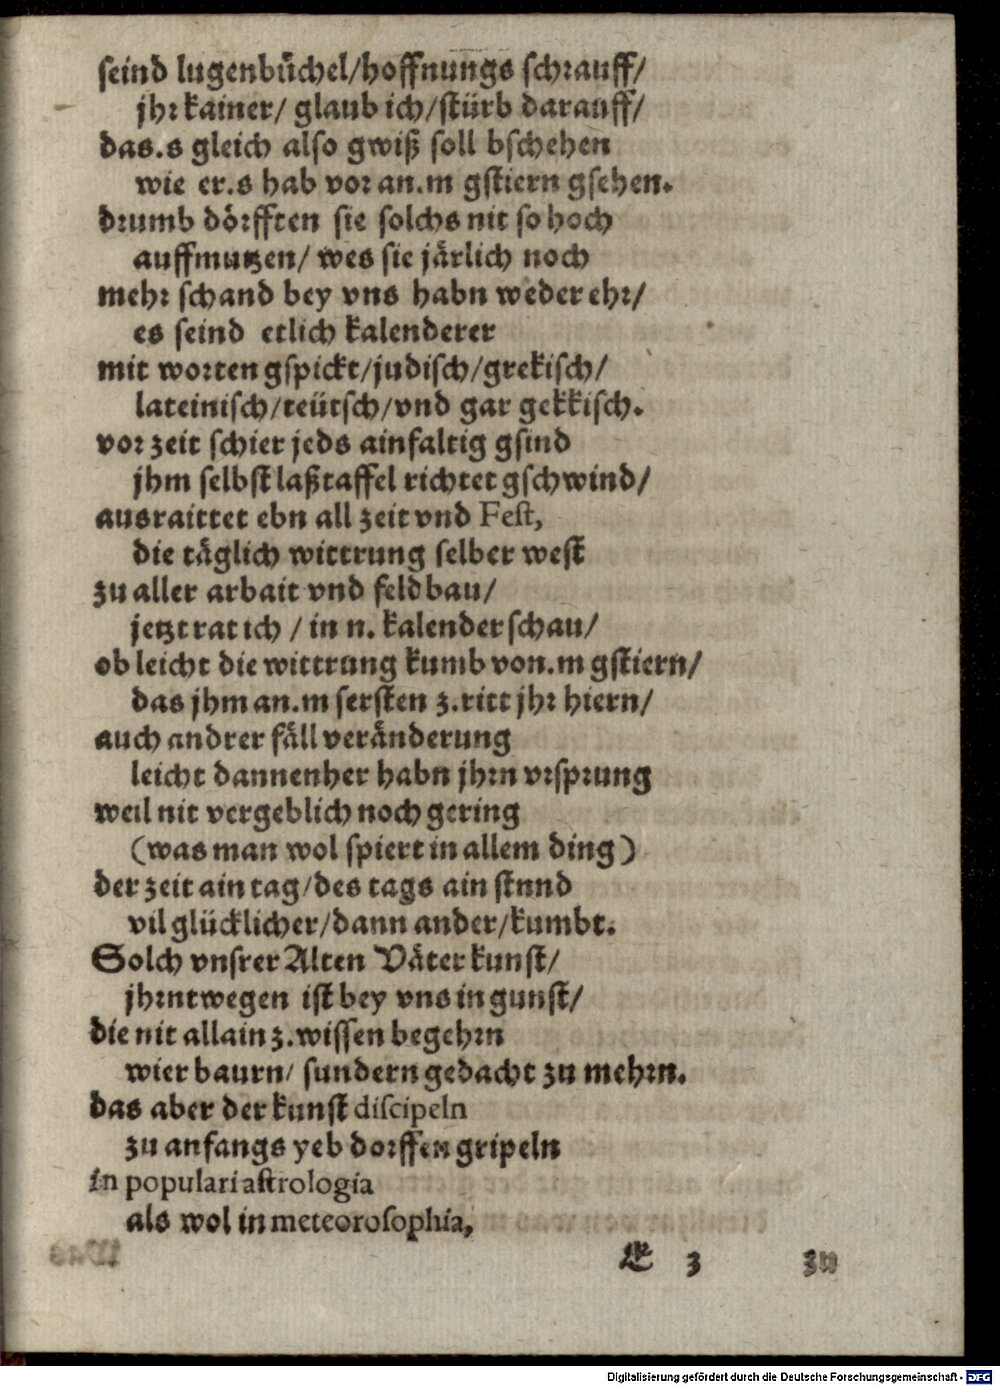 seind lugenbüchel/hoffnungs schrauff/
jhr kainer/ glaub ich/stürb darauff/
das.s gleich also gwiß soll bschehen
wie er.s hab vor an.m gstiern gsehen.
drumb dörfften sie solchs nit so hoch
auffmutzen/ wes sie järlich noch
mehr schand bey vns habn weder ehr/
es seind etlich kalenderer
mit worten gspickt/judisch/grekisch/
lateinisch/teütsch/vnd gar gekkisch.
vor zeit schier jeds ainfaltig gsind
jhm selbst laßtaffel richtet gschwind/
ausraittet ebn all zeit vnd Fest,
die täglich wittrung selber west
zu aller arbait vnd feldbau/
jetzt rat ich / in n. kalender schau/
ob leicht die wittrung kumb von.m gstiern/
das jhm an.m fersten z.ritt jhr hiern/
auch andrer fäll veränderung
leicht dannenher habn jhrn vrsprung
weil nit vergeblich noch gering
(was man wol spiert in allem ding)
der zeit ain tag/des tags ain stund
vil glücklicher/dann ander/kumbt.
Solch vnsrer Alten Väter kunst/
jhrntwegen ist bey vns in gunst/
die nit allain z.wissen begehrn
wier baurn/ sundern gedacht zu mehrn.
das aber der kunst discipeln
zu anfangs yeb dorffen gripeln
in populari astrologia
als wol in meteorosophia,
E 3 zu
Digitalisierung gefördert durch die Deutsche Forschungsgemeinschaft - DFG